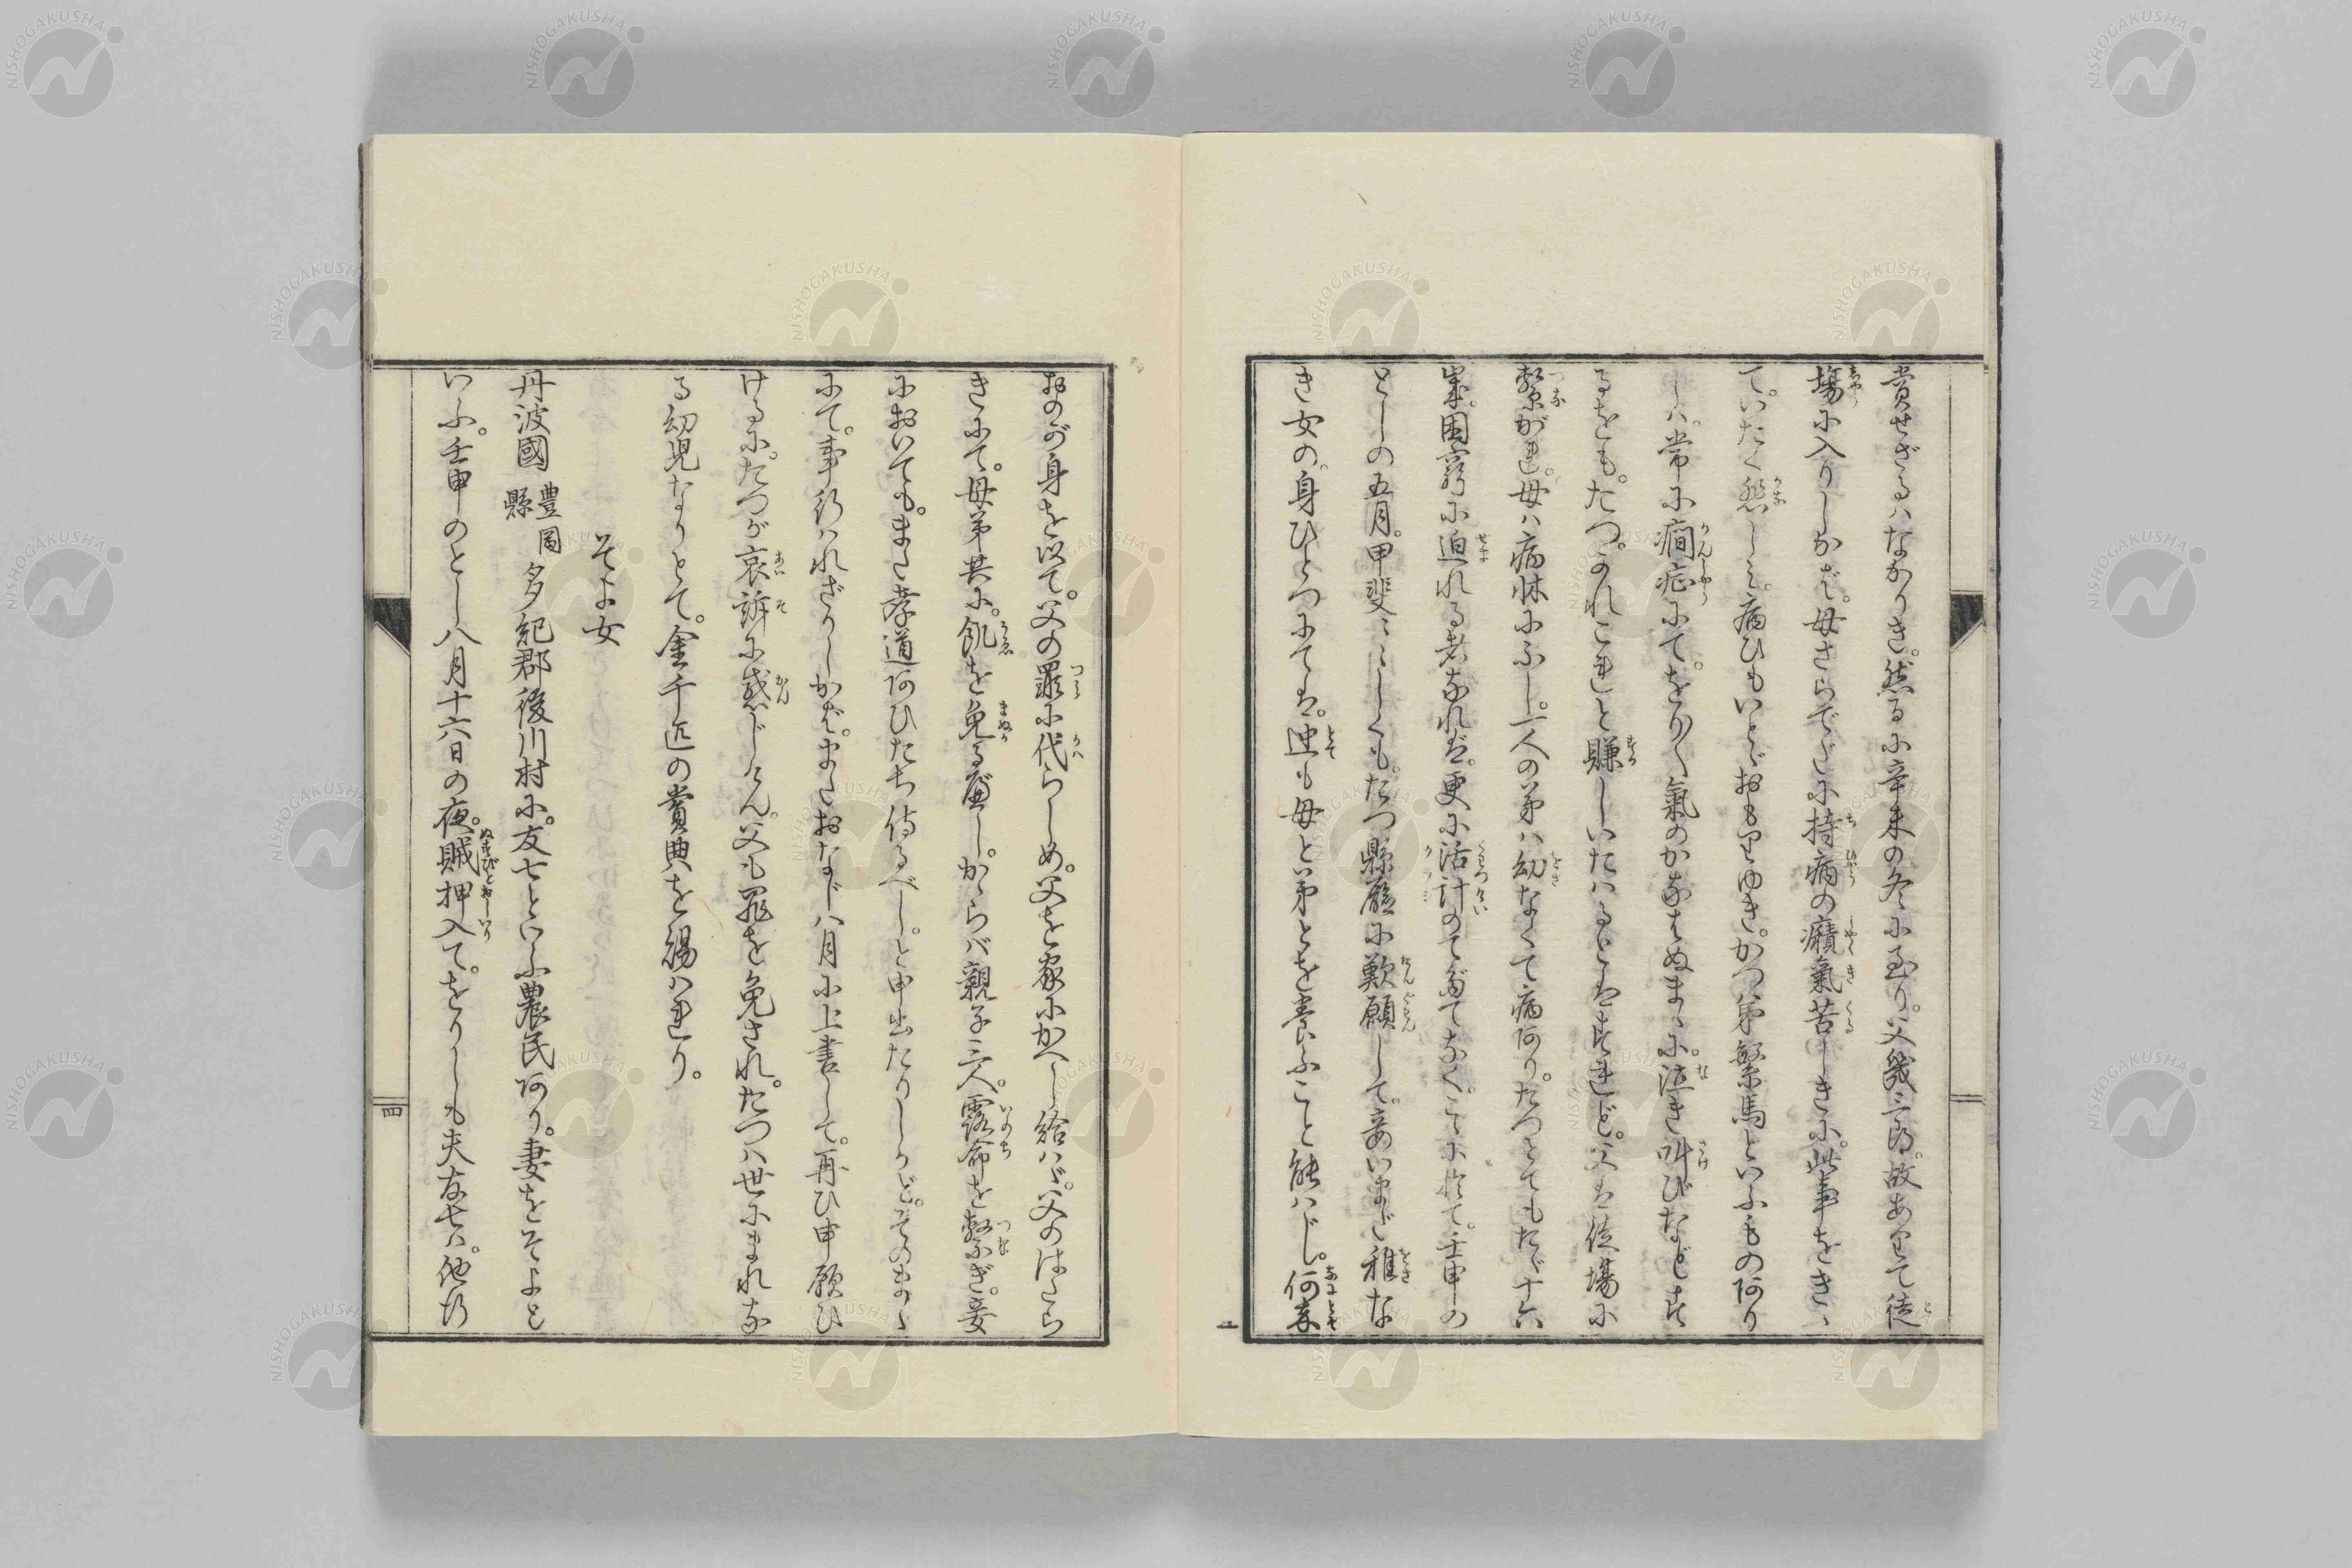 賞せざるハなかりき。然るに辛未の冬に至り。父幾三郎。故ありて徒
場に入りしかバ。母さらでだに持病の癪氣苦しきに。此事をきゝ
て。いたく愁しミ。病ひもいとゞおもりゆき。かつ弟繁馬といふもの阿り
しハ。常に癇症にて。をり〱氣のかなはぬまゝに。泣き叫びなどす
るをも。たつ。かれこれと賺しいたハるとはすれど。父は徒場に
繋がれ。母ハ病牀にふし。一人の弟ハ幼なくて病阿り。たつとてもたゞ十六
歳。困窮に迫れる者なれば。更に活計のてだてなく。こゝに於て。壬申の
としの五月。甲斐〻〻しくも。たつ縣廳に歎願して。妾いまだ稚な
き女の。身ひとつにてハ。迚も母と弟とを養ふこと能ハじ。何卒
おのが身を以て。父の罪に代らしめ。父を家にかへし給ハゞ。父のはたら
きにて。母弟共に。飢を免る蘆し。かゝらバ親子三人。露命を繋ぎ。妾
においても。また孝道阿ひたち侍るべし。と申出たりしかど。そのまゝ
にて。事行ハれざりしかば。またおなじ八月に上書して。再ひ申願ひ
けるに。たつが哀訴に感じけん。父も罪を免され。たつハ世にまれな
る幼児なりとて。金千疋の賞典を賜ハれり。
そよ女
丹波國豊岡縣多紀郡後川村に。友七といふ農民阿り。妻をそよと
いふ。壬申のとし八月十六日の夜。賊押入て。をりしも夫友七ハ。他行
四